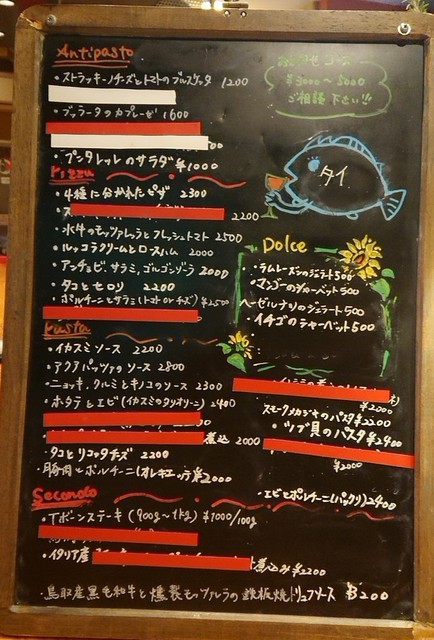 Antipasto
・ストラッキーノチーズとトマトのブルスケッタ 1200
・ブラータのカプレーゼ 1600
・プンタレッレのサラダ ¥1000
Pizza
・4種に分かれたピザ 2300
・ス 2200
・水牛のモッツァレラとフレッシュトマト 2500
・ルッコラクリームとロースハム 2000
・アンチョビ、サラミ、ゴルゴンゾーラ 2000
・タコとセロリ 2200
・ポルチーニとサラミ(トマト or チーズ) ¥2500
Pasta
・イカスミソース 2200
・アクアパッツァのソース 2800
・ニョッキ、クルミとキノコのソース 2300
・ホタテとエビ(イカスミのタリオリーニ) 2400
煮込 2000
・タコとリコッタチーズ 2200
・豚肉とポルチーニ(オレキエッテ) ¥2000
Secondo
・Tボーンステーキ (900g〜1kg) ¥1000/100g
・イタリア産 煮込み ¥2200
・鳥取産黒毛和牛と燻製モッツァレラの鉄板焼トリュフソース
コース
¥3000〜5000
ご相談下さい!!
タイ
Dolce
・ラムレーズンのジェラート 500
・マンゴーのシャーベット 500
ヘーゼルナッツのジェラート 500
・イチゴのシャーベット 500
¥2000
スモークメカジキのパスタ ¥2200
・ツブ貝のパスタ ¥2400
¥2000
・エビとポルチーニ(パッケリ) 2400